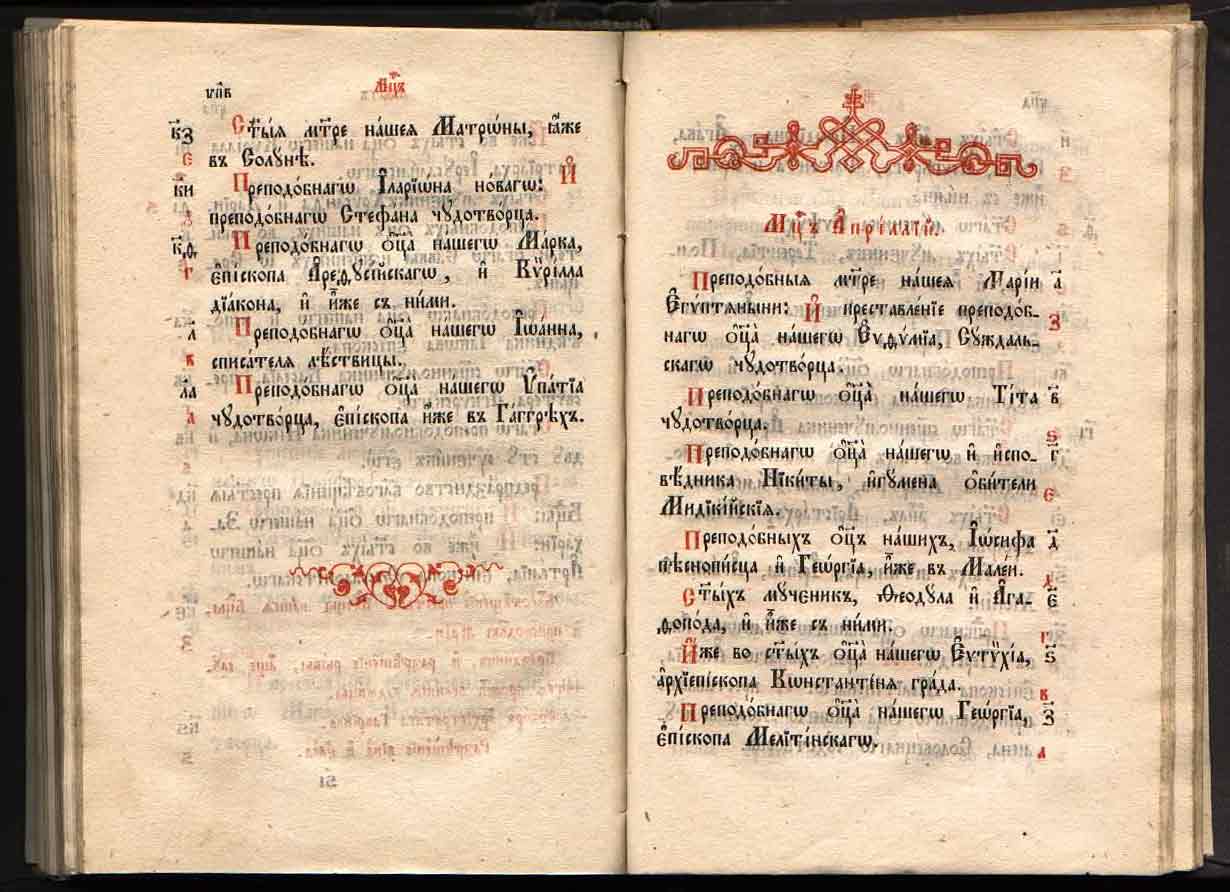 упв мцъ
кз Ст҃ы́я мт҃ре на́шея Матрѡ́ны, ꙗ́же
є въ Солꙋ́нѣ.
ки Преподо́бнагѡ Їларїѡ́на но́вагѡ: И҆
д преподо́бнагѡ Стефа́на чꙋдотво́рца.
кѳ Преподо́бнагѡ ѻ҆ц҃а̀ на́шегѡ Ма́рка,
г є҆пі́скопа А҆реѳꙋсі́йскагѡ, и҆ Кѷрі́лла
дїа́кона, и҆ и҆́же съ ни́ми.
л Преподо́бнагѡ ѻ҆ц҃а̀ на́шегѡ І҆ѡа́нна,
в списа́теля лѣ́ствицы.
ла Преподо́бнагѡ ѻ҆ц҃а̀ на́шегѡ Ѵ҆па́тїа
а чꙋдотво́рца, є҆пі́скопа и҆́же въ Га́ггрѣхъ.
Мц҃ъ А҆прі́ллїй.
Преподо́бныя мт҃ре на́шея Марі́и а҃
Є҆гѵ́птяныни: И҆ преставле́нїе преподо́б-
нагѡ ѻ҆ц҃а̀ на́шегѡ Є҆ѵѳѵ́мїа, Сꙋ́ждаль- з
скагѡ чꙋдотво́рца.
Преподо́бнагѡ ѻ҆ц҃а̀ на́шегѡ Ті́та в҃
чꙋдотво́рца.
ѕ
Преподо́бнагѡ ѻ҆ц҃а̀ на́шегѡ и҆ и҆спо- г҃
вѣ́дника Ники́ты, и҆гꙋ́мена ѻ҆би́тели
Мидїкі́йскїя. є
Преподо́бныхъ ѻ҆ц҃ъ на́шихъ, І҆ѡ́сифа д҃
пѣснопи́сца и҆ Геѡ́ргїа, и҆́же въ Мале́и.
д
Ст҃ы́хъ мꙋ́ченикъ, Ѳеодꙋ́ла и҆ А҆га- є҃
ѳопо́да, и҆ и҆́же съ ни́ми.
г
И҆́же во ст҃ы́хъ ѻ҆ц҃а̀ на́шегѡ Є҆ѵтѷ́хїа, ѕ҃
а҆рхїепі́скопа Кѡнстанті́ня гра́да.
в
Преподо́бнагѡ ѻ҆ц҃а̀ на́шегѡ Геѡ́ргїа, з҃
є҆пі́скопа Меліті́нскагѡ. а